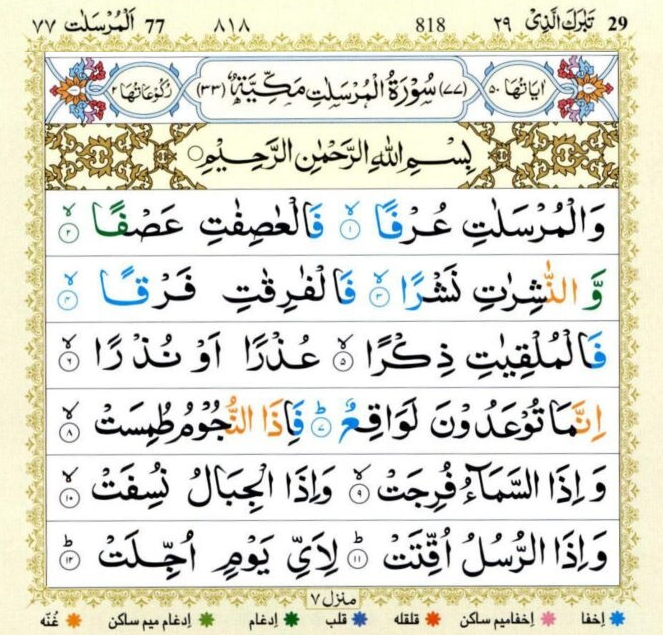 29 تَبٰرَكَ الَّذِیْ ٢٩ 818 ٨١٨ 77 اَلْمُرْسَلٰت ٧٧
اٰیَاتُهَا ٥٠ (٧٧) سُوْرَةُ الْمُرْسَلٰتِ مَكِّیَّةٌ (٣٣) رُكُوْعَاتُهَا ٢
بِسْمِ اللّٰهِ الرَّحْمٰنِ الرَّحِیْمِ
وَالْمُرْسَلٰتِ عُرْفًا ۙ‏ ١ فَالْعٰصِفٰتِ عَصْفًا ۙ‏ ٢
وَّ النّٰشِرٰتِ نَشْرًا ۙ‏ ٣ فَالْفٰرِقٰتِ فَرْقًا ۙ‏ ٤
فَالْمُلْقِیٰتِ ذِكْرًا ۙ‏ ٥ عُذْرًا اَوْ نُذْرًا ۙ‏ ٦
اِنَّمَا تُوْعَدُوْنَ لَوَاقِعٌ ؕ‏ ٧ فَاِذَا النُّجُوْمُ طُمِسَتْ ۙ‏ ٨
وَ اِذَا السَّمَآءُ فُرِجَتْ ۙ‏ ٩ وَاِذَا الْجِبَالُ نُسِفَتْ ۙ‏ ١٠
وَ اِذَا الرُّسُلُ اُقِّتَتْ ؕ‏ ١١ لِاَیِّ یَوْمٍ اُجِّلَتْ ؕ‏ ١٢
منزل ٧
إخفا إخفامیم ساكن قلقله قلب إدغام إدغام میم ساكن غُنّه